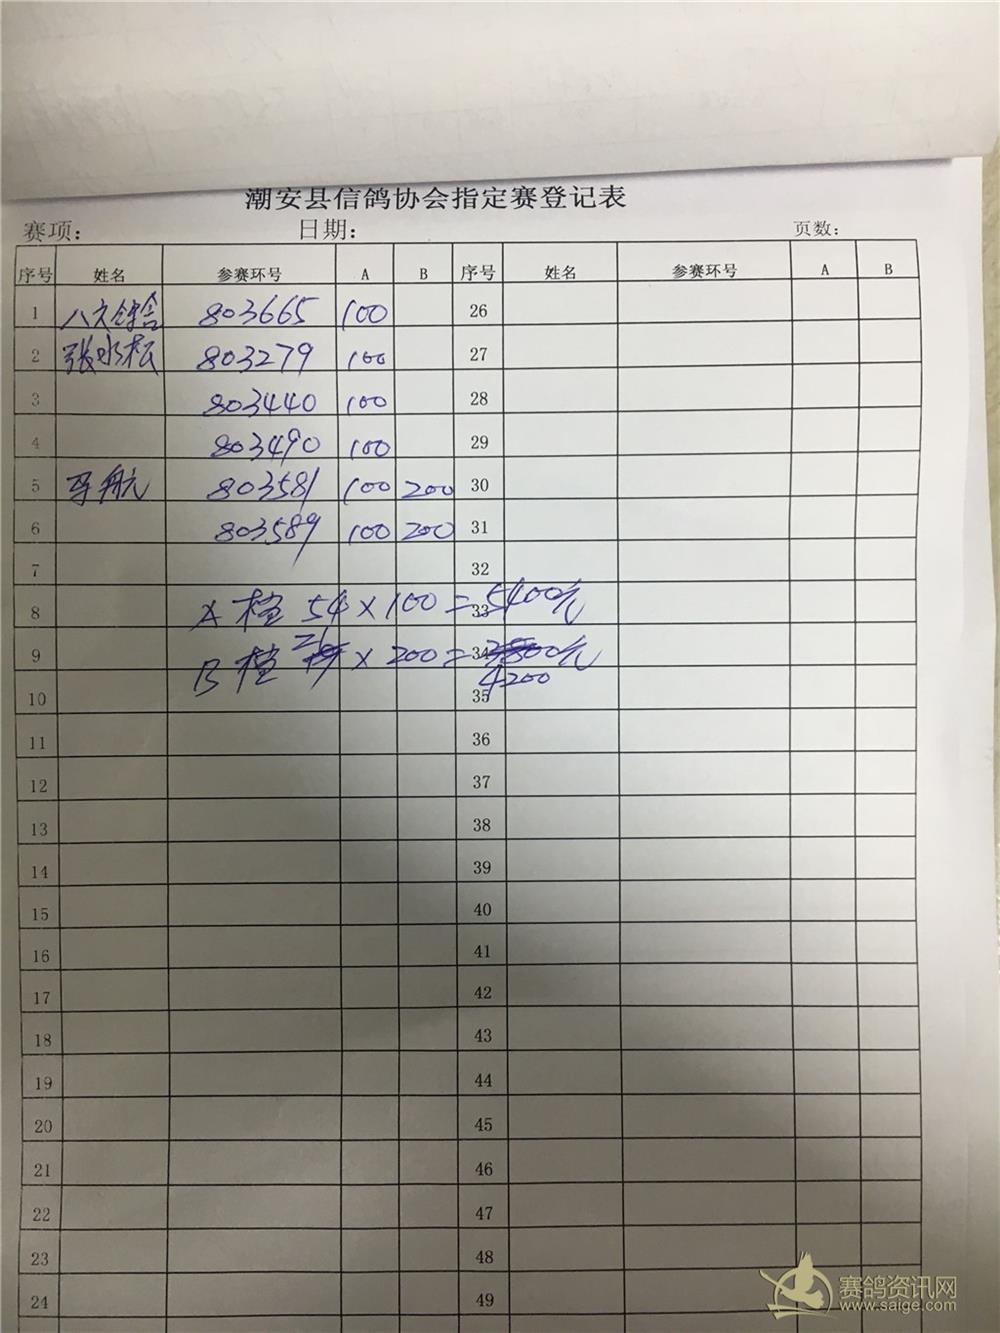 潮安县信鸽协会指定赛登记表
赛项: 日期: 页数:
序号 姓名 参赛环号 A B 序号 姓名 参赛环号 A B
1 803665 100 26
2 张水松 803279 100 27
3 803440 100 28
4 803490 100 29
5 航 803581 100 200 30
6 803589 100 200 31
7 32
8 A 档 54×100=5400元 33
9 B 档 21×200= 元 34
10 4200 35
11 36
12 37
13 38
14 39
15 40
16 41
17 42
18 43
19 44
20 45
21 46
22 47
23 48
24 49
赛鸽资讯网
www.saige.com